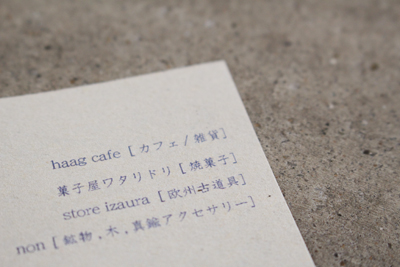 haag cafe [カフェ/雑貨]
菓子屋ワタリドリ[焼菓子]
store izaura [欧州古道具]
non [鉱物,木,真鍮アクセサリー]